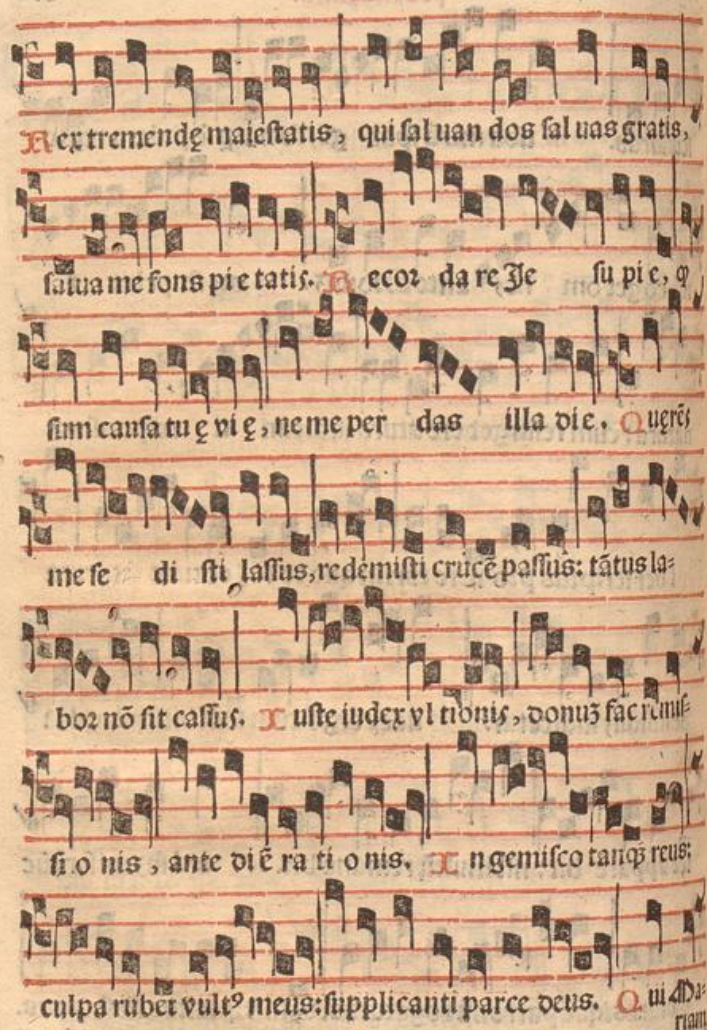 Rex tremendę maiestatis, qui saluandos saluas gratis,
salua me fons pietatis. Recordare Jesu pie, ꝙ
sum causa tuę vię, ne me perdas illa die. Quęrēs
me sedisti lassus, redemisti crucē passus: tātus la-
bor nō sit cassus. Iuste iudex vltionis, donuꝫ fac remis-
sionis, ante diē rationis. Ingemisco tanqꝫ reus:
culpa rubet vultꝰ meus: supplicanti parce deus. Qui Ma-
riam